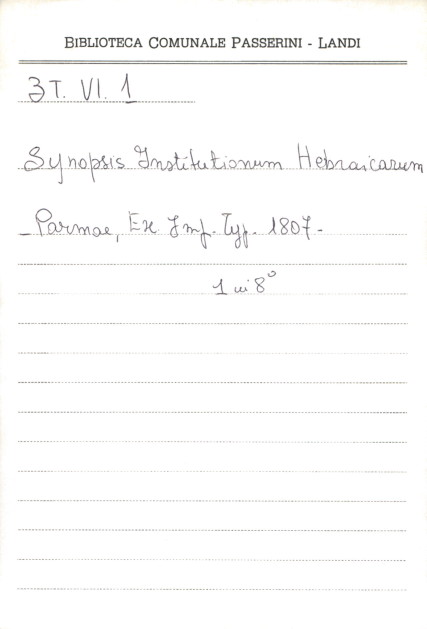 BIBLIOTECA COMUNALE PASSERINI - LANDI
3T. VI. 1
Synopsis Institutionum Hebraicarum
- Parmae, Ex Imp. Typ. 1807 -
1 in 8°